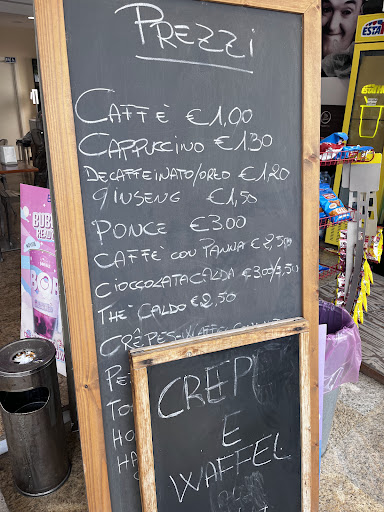 PREZZI
CAFFÈ €1,00
CAPPUCCINO €1,30
DECAFFEINATO/ORZO €1,20
GINSENG €1,50
PONCE €3.00
CAFFÈ CON PANNA €2,50
CIOCCOLATA CALDA €3.00/3,50
THÈ CALDO €2,50
CRÊPES
CREPE
E
WAFFEL
BUB
ESTA